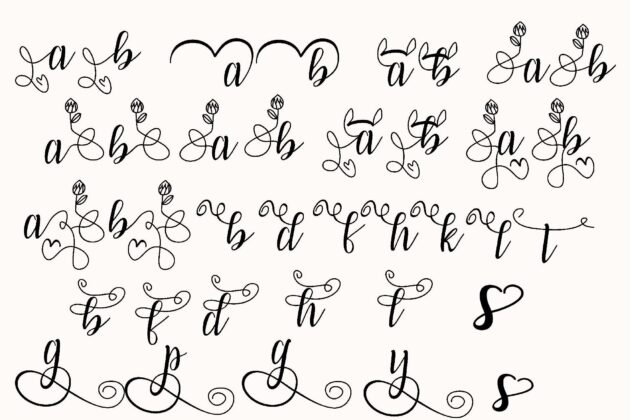 a b a b a b a b
a b a b a b a b
a b b d f h k l t
b f d h l s
g p g y s